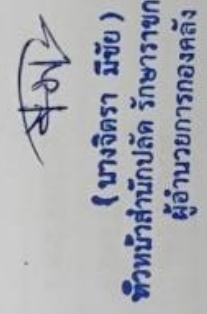 ( นางจิตรา มีชัย )
หัวหน้าสำนักปลัด รักษาราชก
ผู้อำนวยการกองคลัง